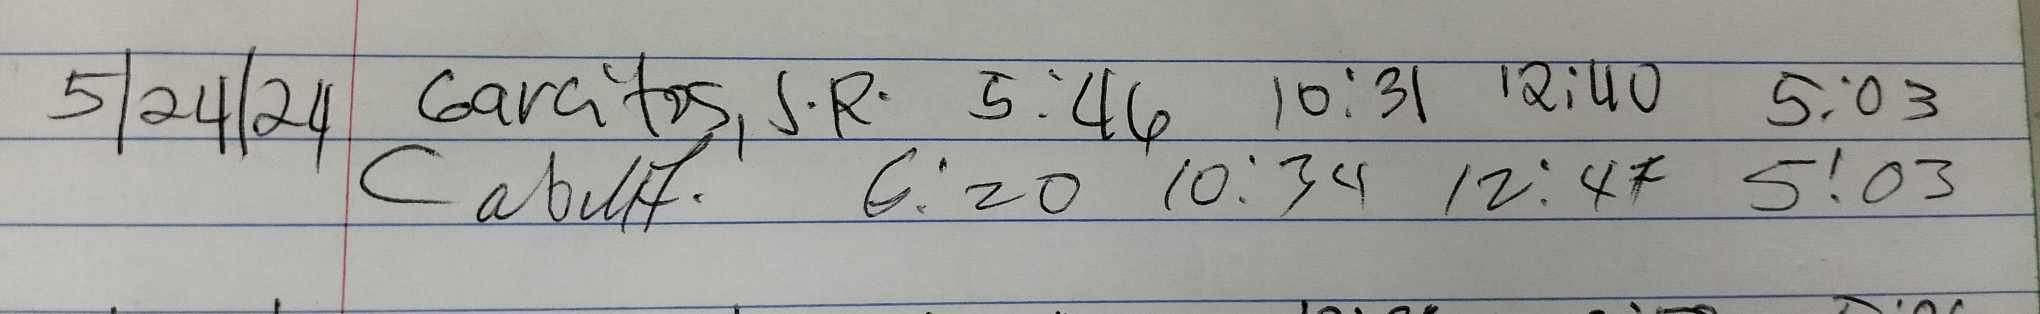 5/24/24 Garcitos, J.R. 5:46 10:31 12:40 5:03
6:20 10:34 12:47 5:03